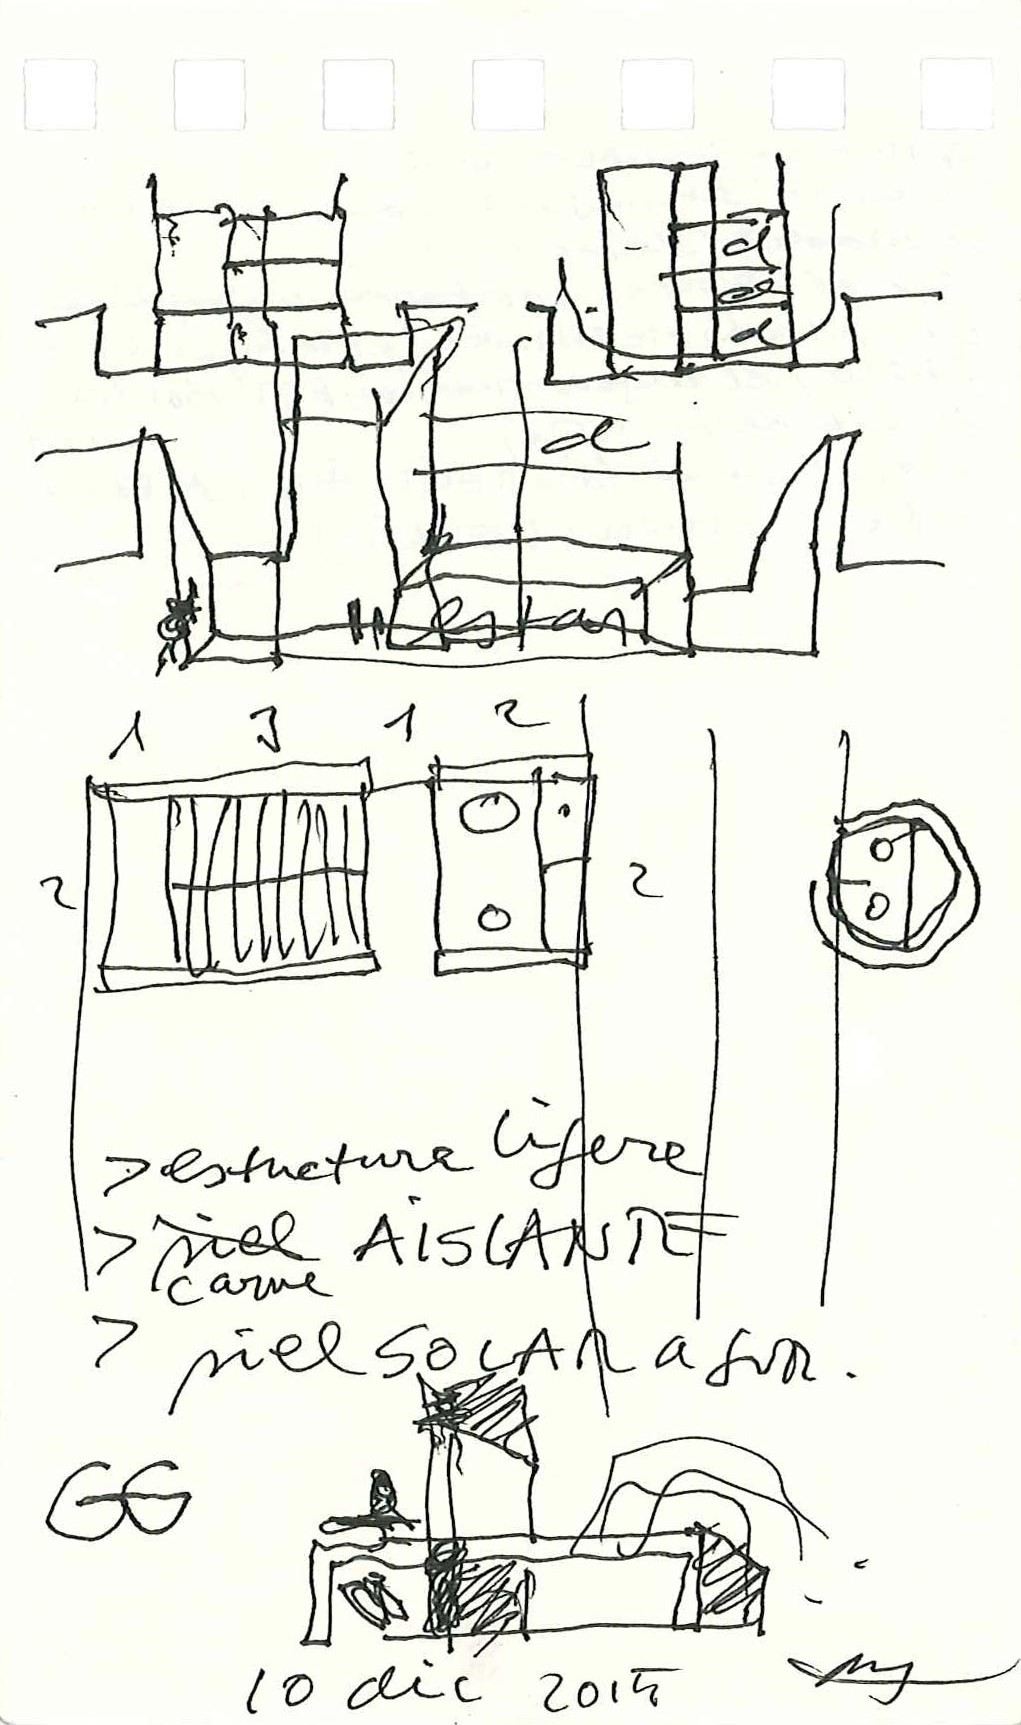 d
d
d
d
estar
1 3 1 2
2 2
> estructura ligera
> piel AISLANTE
carne
> piel SOLAR a fon.
GG
10 dic 2015